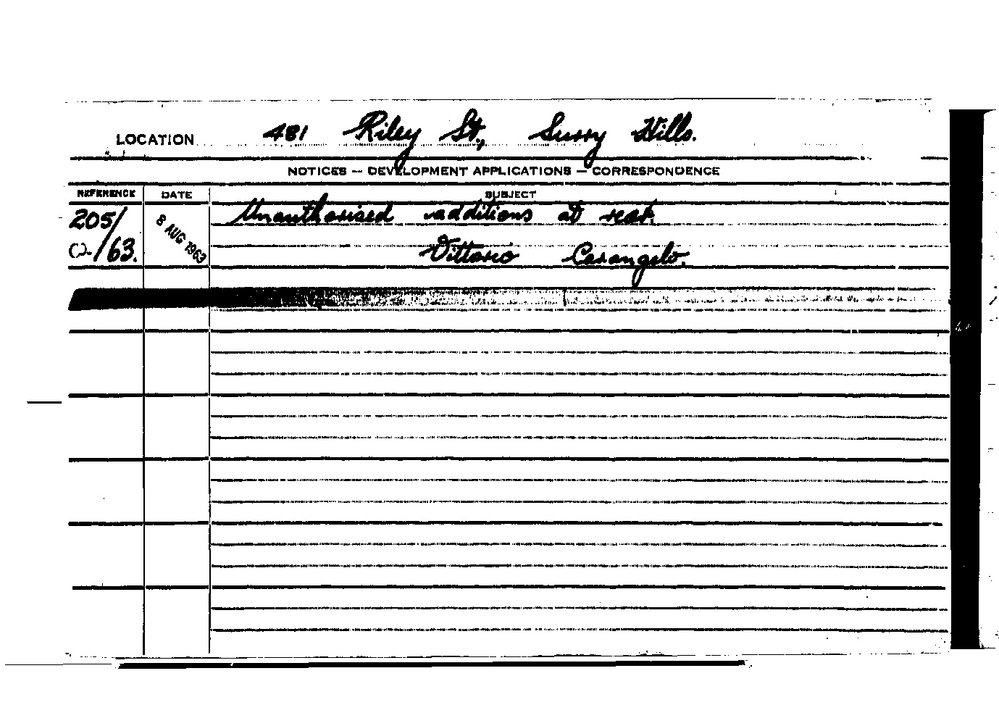 LOCATION 481 Riley St., Surry Hills.
NOTICES — DEVELOPMENT APPLICATIONS — CORRESPONDENCE
REFERENCE DATE SUBJECT
205/ 8 AUG 1963 Unauthorised additions at rear
/63. Vittorio Carangelo.